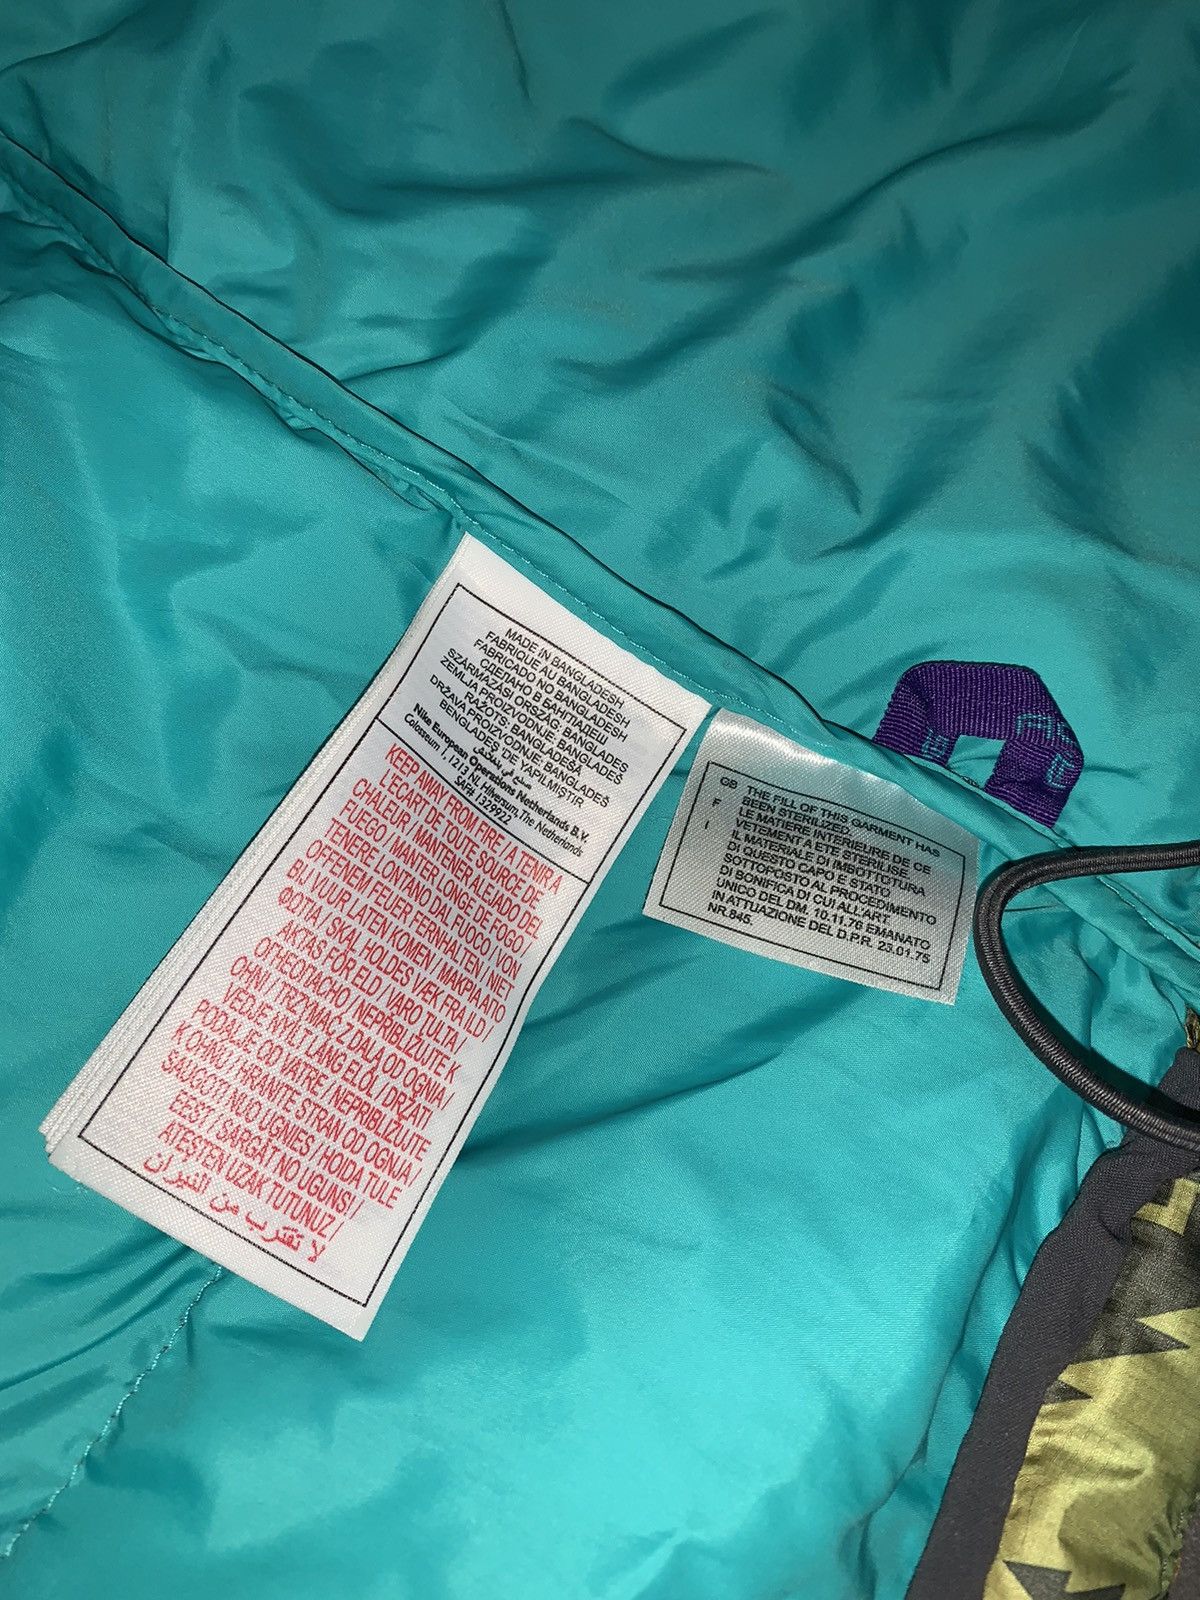 MADE IN BANGLADESH
FABRIQUE AU BANGLADESH
FABRICADO NO BANGLADESH
СДЕЛАНО В БАНГЛАДЕШ
SZÁRMAZÁSI ORSZÁG: BANGLADES
ZEMLJA PROIZVODNJE: BANGLADEŠ
RAŽOTS: BANGLADEŠA
DRŽAVA PROIZVODNJE: BANGLADEŠ
BENGLADEŞ DE YAPILMIŞTIR
Nike European Operations Netherlands B.V.
Colosseum 1, 1213 NL Hilversum, The Netherlands
SAF# 1329922
KEEP AWAY FROM FIRE / A TENIR A
L'ECART DE TOUTE SOURCE DE
CHALEUR / MANTENER ALEJADO DEL
FUEGO / MANTER LONGE DE FOGO /
TENERE LONTANO DAL FUOCO / VON
OFFENEM FEUER FERNHALTEN / NIET
BIJ VUUR LATEN KOMEN / ΜΑΚΡΙΑ ΑΠΟ
ΦΩΤΙΑ / SKAL HOLDES VÆK FRA ILD /
AKTAS FÖR ELD / VARO TULTA /
ОГНЕОПАСНО / NEPŘIBLIŽUJTE K
OHNI / TRZYMAĆ Z DALA OD OGNIA /
VEDJE NYÍLT LÁNG ELŐL / DRŽATI
PODALJE OD VATRE / NEPRIBLIŽUJTE
K OHŇU / HRANITE STRAN OD OGNJA /
SAUGOTI NUO UGNIES / HOIDA TULE
EEST / SARGĀT NO UGUNS! /
ATEŞTEN UZAK TUTUNUZ /
لا تقترب من النيران
GB THE FILL OF THIS GARMENT HAS
BEEN STERILIZED.
F LE MATIERE INTERIEURE DE CE
VETEMENT A ETE STERILISE
I IL MATERIALE DI IMBOTTOTURA
DI QUESTO CAPO E STATO
SOTTOPOSTO AL PROCEDIMENTO
DI BONIFICA DI CUI ALL'ART.
UNICO DEL DM. 10.11.76 EMANATO
IN ATTUAZIONE DEL D.P.R. 23.01.75
NR.845.